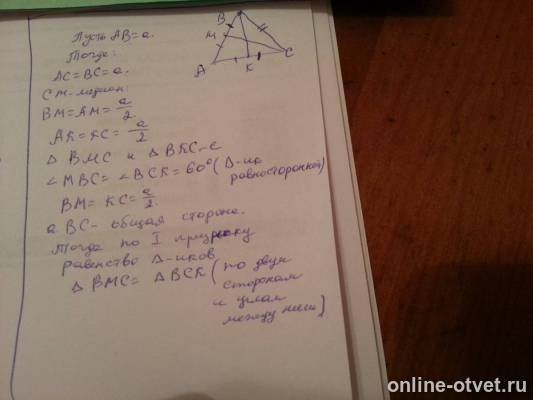 Пусть AB = a.
Тогда:
AC = BC = a.
CM - медиан:
BM = AM = a/2
AK = KC = a/2
△ BMC и △ BKC - е
∠MBC = ∠BCK = 60° (△-ик
равносторонний)
BM = KC = a/2.
а BC - общая сторона.
Тогда по I признаку
равенство △-иков
△ BMC = △ BCK (по двум
сторонам
и углам
между ними)
B
M
A
K
C
online-otvet.ru